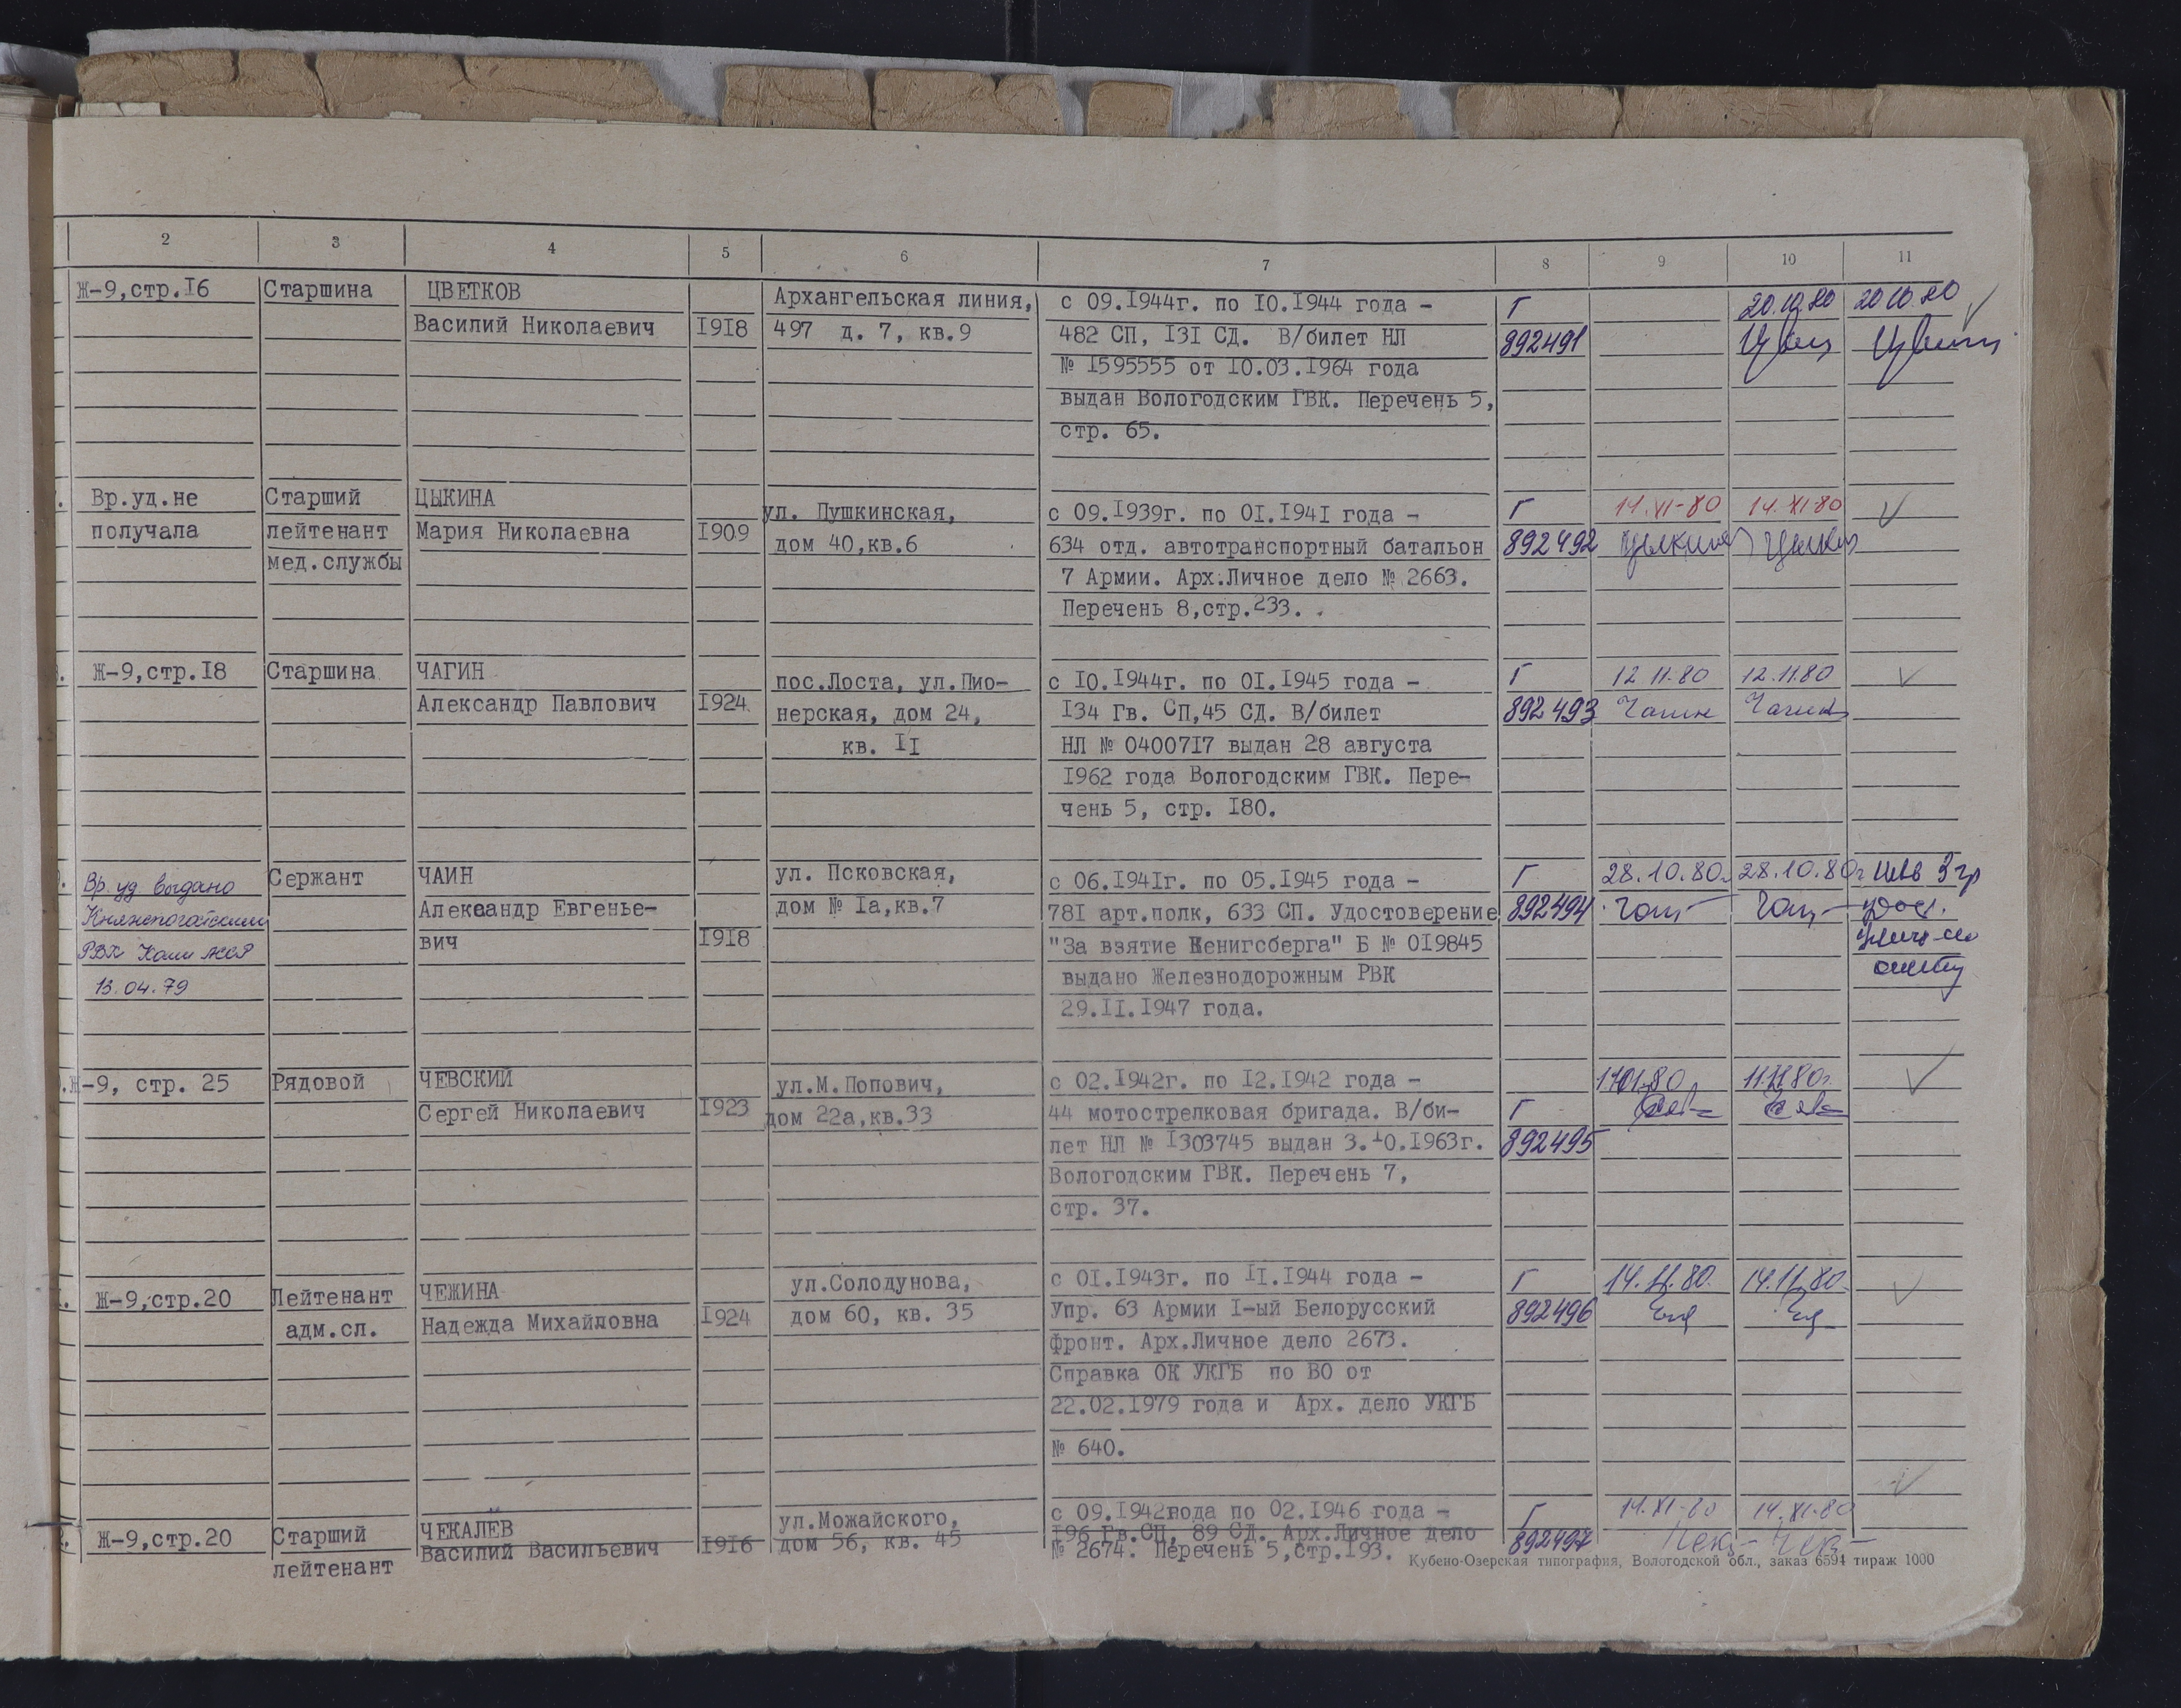 2 3 4 5 6 7 8 9 10 11
Ж-9,стр.I6 Старшина ЦВЕТКОВ Архангельская линия, с 09.I944г. по I0.I944 года - Г 20.10.80 20.10.80
Василий Николаевич I9I8 497 д. 7, кв.9 482 СП, I3I СД. В/билет НЛ 892491
№ I595555 от I0.03.I964 года
выдан Вологодским ГВК. Перечень 5,
стр. 65.
Вр.уд.не Старший ЦЫКИНА ул. Пушкинская, с 09.I939г. по 0I.I94I года - Г 14.XI-80 14.XI-80
получала лейтенант Мария Николаевна I909 дом 40,кв.6 634 отд. автотранспортный батальон 892492 Цыкина
мед.службы 7 Армии. Арх.Личное дело № 2663.
Перечень 8,стр.233.
Ж-9,стр.I8 Старшина ЧАГИН пос.Лоста, ул.Пио- с I0.I944г. по 0I.I945 года - Г 12.11.80 12.11.80
Александр Павлович I924 нерская, дом 24, I34 Гв. СП,45 СД. В/билет 892493 Чагин Чагин
кв. II НЛ № 04007I7 выдан 28 августа
I962 года Вологодским ГВК. Пере-
чень 5, стр. I80.
Вр. уд выдано Сержант ЧАИН ул. Псковская, с 06.I94Iг. по 05.I945 года - Г 28.10.80г. 28.10.80г. Инв 3 гр
Княжпогостским Александр Евгенье- дом № Iа,кв.7 78I арт.полк, 633 СП. Удостоверение 892494
РВК Коми АССР вич I9I8 "За взятие Кенигсберга" Б № 0I9845
13.04.79 выдано Железнодорожным РВК
29.II.I947 года.
Ж-9, стр. 25 Рядовой ЧЕВСКИЙ ул.М.Попович, с 02.I942г. по I2.I942 года - 11.11.80г.
Сергей Николаевич I923 дом 22а,кв.33 44 мотострелковая бригада. В/би- Г
лет НЛ № I303745 выдан 3.I0.I963г. 892495
Вологодским ГВК. Перечень 7,
стр. 37.
Ж-9,стр.20 Лейтенант ЧЕЖИНА ул.Солодунова, с 0I.I943г. по II.I944 года - Г 14.11.80. 14.11.80.
адм.сл. Надежда Михайловна I924 дом 60, кв. 35 Упр. 63 Армии I-ый Белорусский 892496
фронт. Арх.Личное дело 2673.
Справка ОК УКГБ по ВО от
22.02.I979 года и Арх. дело УКГБ
№ 640.
Ж-9,стр.20 Старший ЧЕКАЛЕВ ул.Можайского, с 09.I942года по 02.I946 года - Г 14.XI-80 14.XI-80
лейтенант Василий Васильевич I9I6 дом 56, кв. 45 I96 Гв.СП, 89 СД. Арх.Личное дело 892497
№ 2674. Перечень 5,стр.I93.
Кубено-Озерская типография, Вологодской обл., заказ 6594 тираж 1000